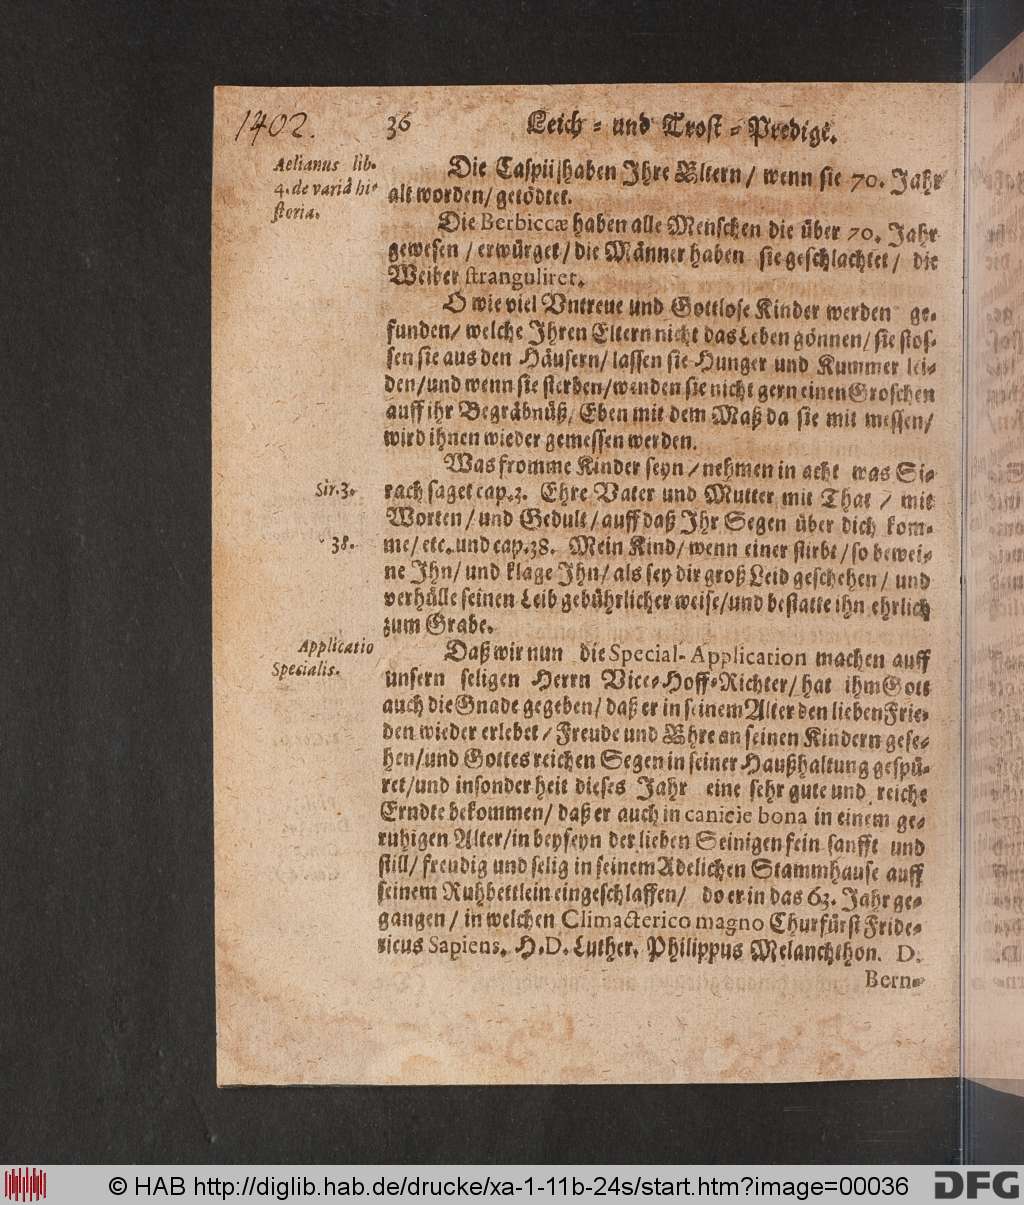 1402.
36
Leich - und Trost - Predigt.
Aelianus lib.
4. de variâ hi-
storia.
Die Caspii haben Ihre Eltern / wenn sie 70. Jahr
alt worden / getödtet.
Die Berbiccæ haben alle Menschen die über 70. Jahr
gewesen / erwürget / die Männer haben sie geschlachtet / die
Weiber stranguliret.
O wie viel Vntreue und Gottlose Kinder werden ge-
funden / welche Ihren Eltern nicht das Leben gönnen / sie stos-
sen sie aus den Häusern / lassen sie Hunger und Kummer lei-
den / und wenn sie sterben / wenden sie nicht gern einen Groschen
auff ihr Begräbnüß, Eben mit dem Maß da sie mit messen /
wird ihnen wieder gemessen werden.
Was fromme Kinder seyn / nehmen in acht was Si-
Sir. 3.
rach saget cap. 3. Ehre Vater und Mutter mit That / mit
Worten / und Gedult / auff daß Ihr Segen über dich kom-
38.
me / etc. und cap. 38. Mein Kind / wenn einer stirbt / so bewei-
ne Ihn / und klage Ihn / als sey dir groß Leid geschehen / und
verhülle seinen Leib gebührlicher weise / und bestatte ihn ehrlich
zum Grabe.
Applicatio
Specialis.
Daß wir nun die Special-Application machen auff
unsern seligen Herrn Vice-Hoff-Richter / hat ihm Gott
auch die Gnade gegeben / daß er in seinem Alter den lieben Frie-
den wieder erlebet / Freude und Ehre an seinen Kindern gese-
hen / und Gottes reichen Segen in seiner Haußhaltung gespü-
ret / und insonderheit dieses Jahr eine sehr gute und reiche
Erndte bekommen / daß er auch in canicie bona in einem ge-
ruhigen Alter / in beyseyn der lieben Seinigen fein sanfft und
still / freudig und selig in seinem Adelichen Stammhause auff
seinem Ruhbettlein eingeschlaffen / do er in das 63. Jahr ge-
gangen / in welchen Climacterico magno Churfürst Fride-
ricus Sapiens. H. D. Luther. Philippus Melanchthon. D.
Bern-
© HAB http://diglib.hab.de/drucke/xa-1-11b-24s/start.htm?image=00036
DFG